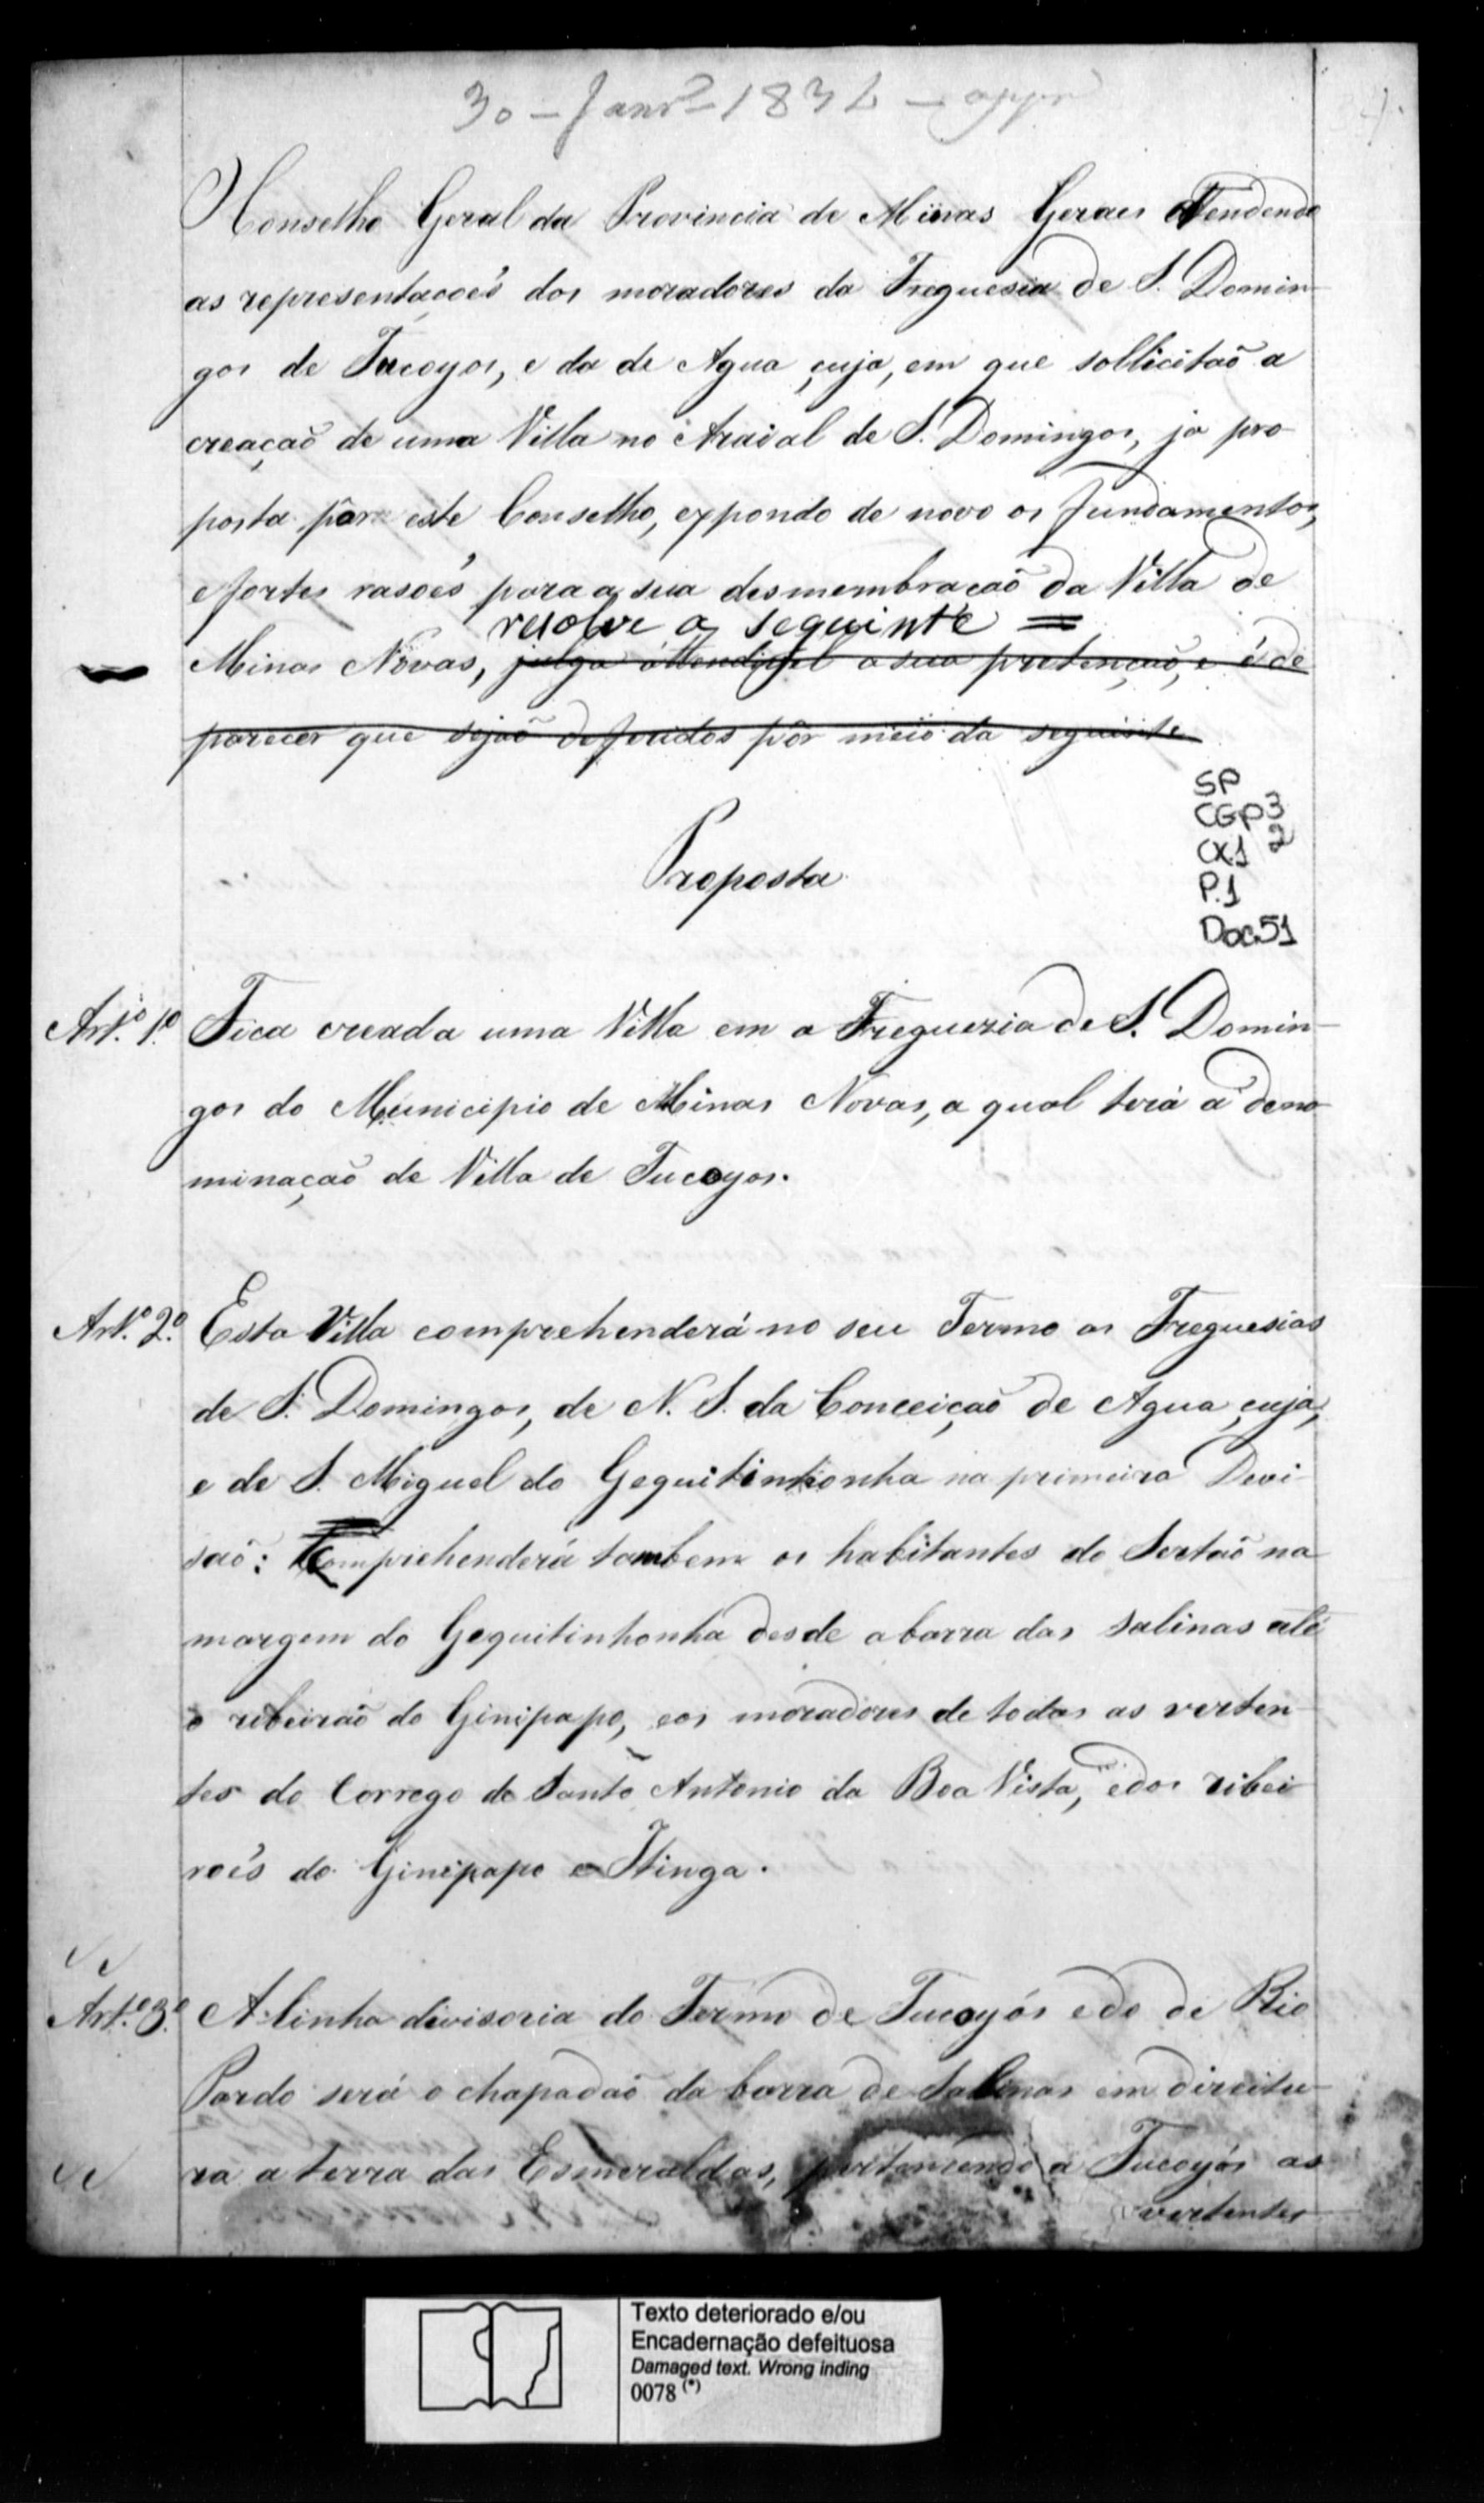 30 - Janr.º - 1832 - appr
O Conselho Geral da Provincia de Minas Geraes Attendendo
as representaçoẽs dos moradores da Freguesia de S. Domin-
gos de Tucoyos, e da de Agua çuja, em que sollicitaõ a
creaçaõ de uma Villa no Araial de S. Domingos, ja pro-
posta pôr este Conselho, expondo de novo os fundamentos,
e fortes rasoẽs para a sua desmembraçaõ da Villa de
resolve a seguinte =
Minas Novas, julga áttendivel a sua pretençaõ, e é de
parecer que sejaõ deferidos pôr meio da seguinte
Proposta
SP
CGP3
CX1 2
P.1
Doc51
Art.º 1.º Fica creada uma Villa em a Freguezia de S. Domin-
gos do Municipio de Minas Novas, a qual terá a deno-
minaçaõ de Villa de Tucoyos.
Art.º 2.º Esta Villa comprehenderá no seu Termo as Freguesias
de S. Domingos, de N. S. da Conceiçaõ de Agua çuja,
e de S. Miguel do Gequitintionha na primeira Devi-
saõ: Comprehenderá tambem os habitantes do Sertaõ na
margem do Gequitinhonha desde a barra das Salinas até
o ribeiraõ do Ginipapo, e os moradores de todas as verten-
tes do Corrego de Santo Antonio da Boa Vista, e dos ribei-
roẽs do Ginipapo e Itinga.
Art.º 3.º A linha divisoria do Termo de Tucoyós e do de Rio
Pardo será o chapadaõ da barra de Salinas em direitu-
ra a terra das Esmeraldas, pertencendo a Tucoyós as
vertentes
Texto deteriorado e/ou
Encadernação defeituosa
Damaged text. Wrong inding
0078 (*)